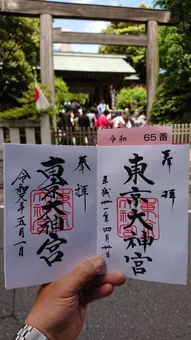 令和 65番
奉拝
東京大神宮
平成三十一年四月三十日
奉拝
東京大神宮
令和元年五月一日